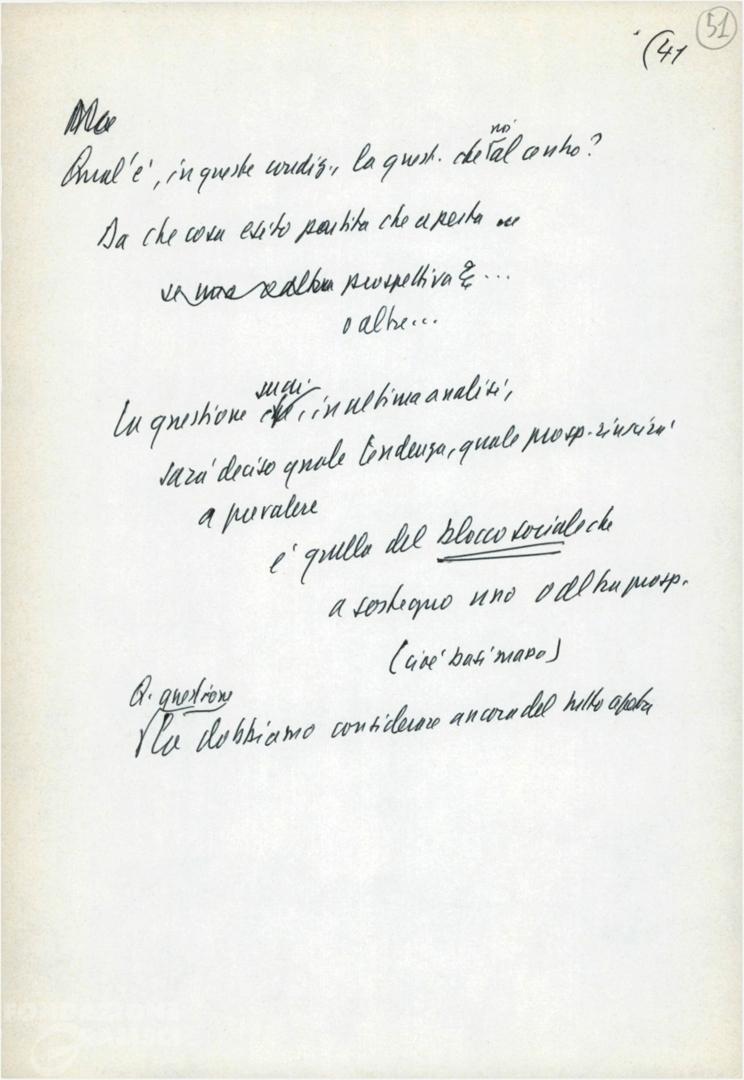 51
(41
Qual'è, in queste condiz., la quest. che noi al centro?
Da che cosa esito partita che aperta
se una o altra prospettiva è ...
o altre...
La questione su cui, in ultima analisi,
sarà deciso quale tendenza, quale prosp. riuscirà
a prevalere
è quella del blocco sociale che
a sostegno uno o altra prosp.
(cioè basi massa)
Q. questione
la dobbiamo considerare ancora del tutto aperta